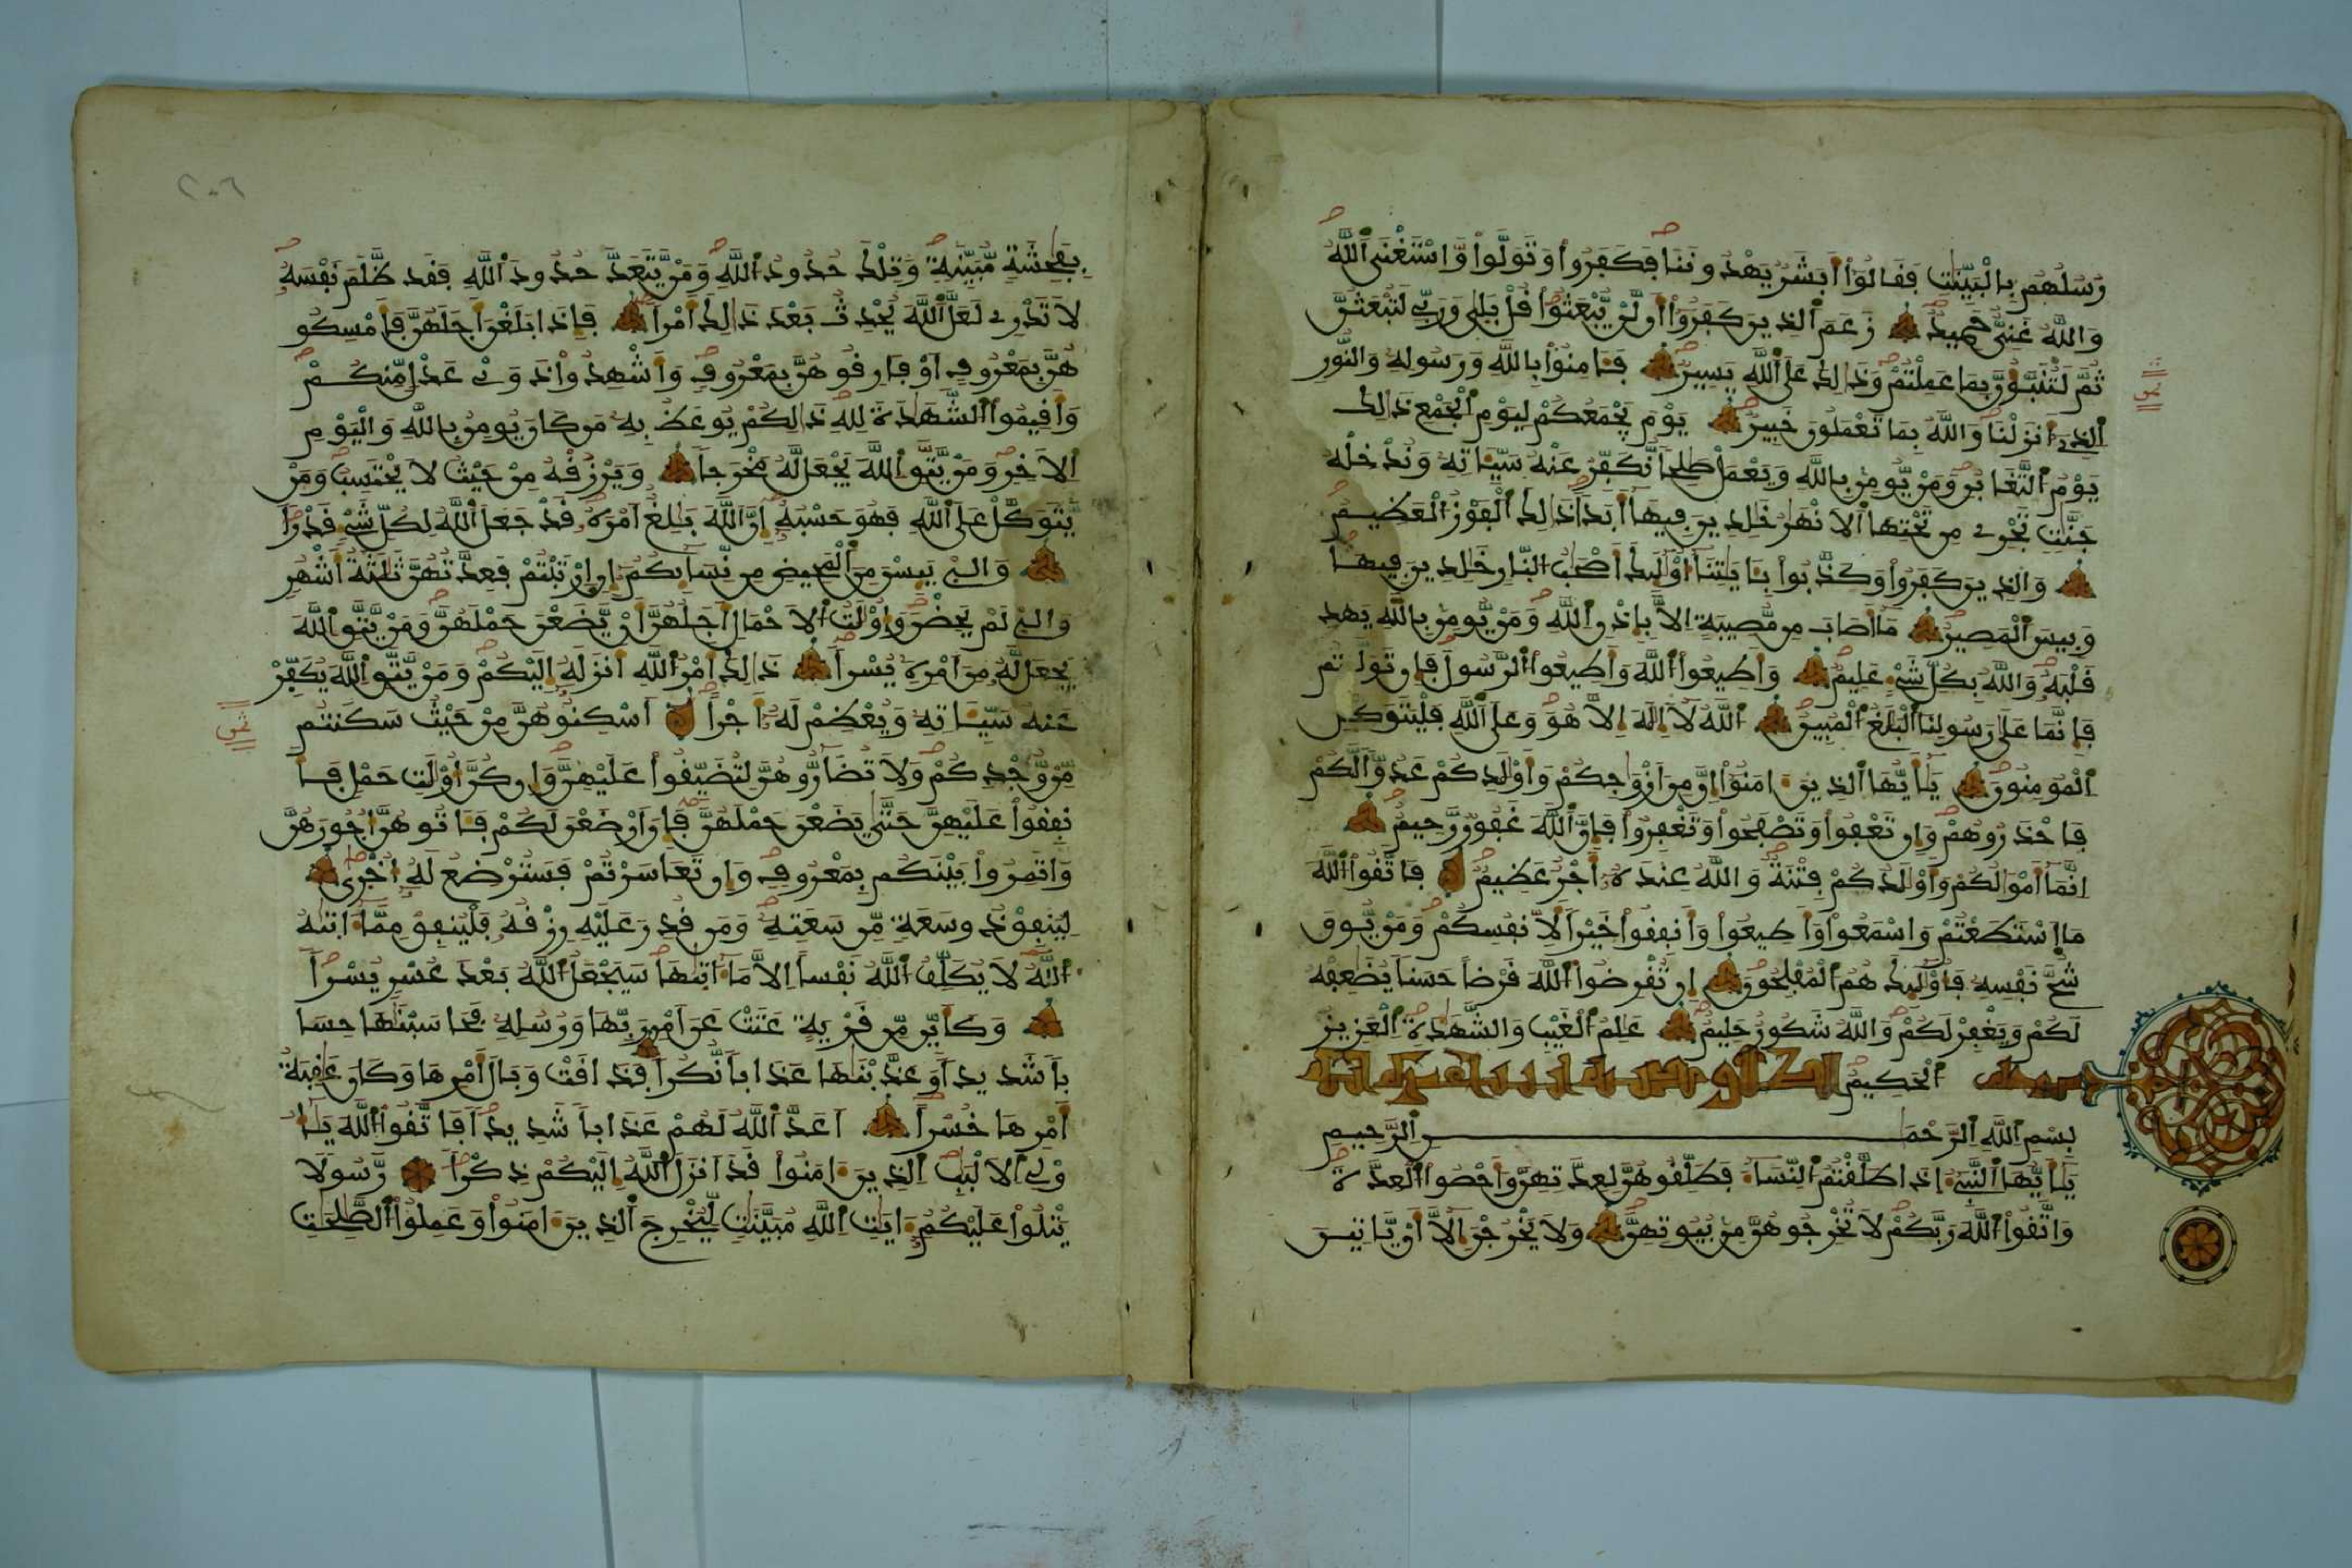 رُسُلُهُم بِالْبَيِّنَٰتِ فَقَالُوٓاْ أَبَشَرٌ يَهْدُونَنَا فَكَفَرُواْ وَتَوَلَّواْ وَّاسْتَغْنَى اَللَّهُ
وَاللَّهُ غَنِيٌّ حَمِيدٌ زَعَمَ اَلذِينَ كَفَرُوٓاْ أَن لَّنْ يُّبْعَثُواْ قُلْ بَلٰى وَرَبِّے لَتُبْعَثُنَّ
ثُمَّ لَتُنَبَّؤُنَّ بِمَا عَمِلْتُمْ وَذَٰلِكَ عَلَى اَللَّهِ يَسِيرٌ فَـَٔامِنُواْ بِاللَّهِ وَرَسُولِهِ وَالنُّورِ
اِلذِےٓ أَنزَلْنَا وَاللَّهُ بِمَا تَعْمَلُونَ خَبِيرٌ يَوْمَ يَجْمَعُكُمْ لِيَوْمِ اِلْجَمْعِ ذَٰلِكَ
يَوْمُ اُلتَّغَابُنِ وَمَنْ يُّومِنۢ بِاللَّهِ وَيَعْمَلْ صَٰلِحاً نُّكَفِّرْ عَنْهُ سَيِّـَٔاتِهِ وَنُدْخِلْهُ
جَنَّٰتٍ تَجْرِے مِن تَحْتِهَا اَلَانْهَٰرُ خَٰلِدِينَ فِيهَآ أَبَداً ذَٰلِكَ اَلْفَوْزُ اُلْعَظِيمُ
وَالذِينَ كَفَرُواْ وَكَذَّبُواْ بِـَٔايَٰتِنَآ أُوْلَٰٓئِكَ أَصْحَٰبُ اُلنَّارِ خَٰلِدِينَ فِيهَا
وَبِيسَ اَلْمَصِيرُ مَآ أَصَابَ مِن مُّصِيبَةٍ اِلَّا بِإِذْنِ اِللَّهِ وَمَنْ يُّومِنۢ بِاللَّهِ يَهْدِ
قَلْبَهُ وَاللَّهُ بِكُلِّ شَےْءٍ عَلِيمٌ وَأَطِيعُواْ اُللَّهَ وَأَطِيعُواْ اُلرَّسُولَ فَإِن تَوَلَّيْتُمْ
فَإِنَّمَا عَلَىٰ رَسُولِنَا اَلْبَلَٰغُ اُلْمُبِينُ اَللَّهُ لَآ إِلَٰهَ إِلَّا هُوَ وَعَلَى اَللَّهِ فَلْيَتَوَكَّلِ
اِلْمُومِنُونَ يَٰٓأَيُّهَا اَلذِينَ ءَامَنُوٓاْ إِنَّ مِنَ اَزْوَٰجِكُمْ وَأَوْلَٰدِكُمْ عَدُوّاً لَّكُمْ
فَاحْذَرُوهُمْ وَإِن تَعْفُواْ وَتَصْفَحُواْ وَتَغْفِرُواْ فَإِنَّ اَللَّهَ غَفُورٌ رَّحِيمٌ
اِنَّمَآ أَمْوَٰلُكُمْ وَأَوْلَٰدُكُمْ فِتْنَةٌ وَاللَّهُ عِندَهُ أَجْرٌ عَظِيمٌ فَاتَّقُواْ اُللَّهَ
مَا اَسْتَطَعْتُمْ وَاسْمَعُواْ وَأَطِيعُواْ وَأَنفِقُواْ خَيْراً لِّأَنفُسِكُمْ وَمَنْ يُّوقَ
شُحَّ نَفْسِهِ فَأُوْلَٰٓئِكَ هُمُ اُلْمُفْلِحُونَ إِن تُقْرِضُواْ اُللَّهَ قَرْضاً حَسَناً يُضَٰعِفْهُ
لَكُمْ وَيَغْفِرْ لَكُمْ وَاللَّهُ شَكُورٌ حَلِيمٌ عَٰلِمُ اُلْغَيْبِ وَالشَّهَٰدَةِ اِلْعَزِيزُ
اُلْحَكِيمُ
بِسْمِ اِللَّهِ اِلرَّحْمَٰنِ اِلرَّحِيمِ
يَٰٓأَيُّهَا اَلنَّبِےٓءُ إِذَا طَلَّقْتُمُ اُلنِّسَآءَ فَطَلِّقُوهُنَّ لِعِدَّتِهِنَّ وَأَحْصُواْ اُلْعِدَّةَ
وَاتَّقُواْ اُللَّهَ رَبَّكُمْ لَا تُخْرِجُوهُنَّ مِنۢ بُيُوتِهِنَّ وَلَا يَخْرُجْنَ إِلَّآ أَنْ يَّاتِينَ
ثمن
٢٠٦
بِفَٰحِشَةٍ مُّبَيِّنَةٍ وَتِلْكَ حُدُودُ اُللَّهِ وَمَنْ يَّتَعَدَّ حُدُودَ اَللَّهِ فَقَد ظَّلَمَ نَفْسَهُ
لَا تَدْرِے لَعَلَّ اَللَّهَ يُحْدِثُ بَعْدَ ذَٰلِكَ أَمْراً فَإِذَا بَلَغْنَ أَجَلَهُنَّ فَأَمْسِكُو
هُنَّ بِمَعْرُوفٍ اَوْ فَارِقُوهُنَّ بِمَعْرُوفٍ وَأَشْهِدُواْ ذَوَےْ عَدْلٍ مِّنكُمْ
وَأَقِيمُواْ اُلشَّهَٰدَةَ لِلهِ ذَٰلِكُمْ يُوعَظُ بِهِ مَن كَانَ يُومِنُ بِاللَّهِ وَالْيَوْمِ
اِلَاخِرِ وَمَنْ يَّتَّقِ اِللَّهَ يَجْعَل لَّهُ مَخْرَجاً وَيَرْزُقْهُ مِنْ حَيْثُ لَا يَحْتَسِبُ وَمَنْ
يَّتَوَكَّلْ عَلَى اَللَّهِ فَهُوَ حَسْبُهُ إِنَّ اَللَّهَ بَٰلِغٌ اَمْرَهُ قَدْ جَعَلَ اَللَّهُ لِكُلِّ شَےْءٍ قَدْراً
وَالّٰٓےْ يَئِسْنَ مِنَ اَلْمَحِيضِ مِن نِّسَآئِكُمُ إِنِ اِرْتَبْتُمْ فَعِدَّتُهُنَّ ثَلَٰثَةُ أَشْهُرٍ
وَالّٰٓےْ لَمْ يَحِضْنَ وَأُوْلَٰتُ اُلَاحْمَالِ أَجَلُهُنَّ أَنْ يَّضَعْنَ حَمْلَهُنَّ وَمَنْ يَّتَّقِ اِللَّهَ
يَجْعَل لَّهُ مِنَ اَمْرِهِ يُسْراً ذَٰلِكَ أَمْرُ اُللَّهِ أَنزَلَهُ إِلَيْكُمْ وَمَنْ يَّتَّقِ اِللَّهَ يُكَفِّرْ
عَنْهُ سَيِّـَٔاتِهِ وَيُعْظِمْ لَهُ أَجْراً اَسْكِنُوهُنَّ مِنْ حَيْثُ سَكَنتُم
ثمن
مِّنْ وُّجْدِكُمْ وَلَا تُضَآرُّوهُنَّ لِتُضَيِّقُواْ عَلَيْهِنَّ وَإِن كُنَّ أُوْلَٰتِ حَمْلٍ فَأَ
نفِقُواْ عَلَيْهِنَّ حَتَّىٰ يَضَعْنَ حَمْلَهُنَّ فَإِنَ اَرْضَعْنَ لَكُمْ فَـَٔاتُوهُنَّ أُجُورَهُنَّ
وَاتَمِرُواْ بَيْنَكُم بِمَعْرُوفٍ وَإِن تَعَاسَرْتُمْ فَسَتُرْضِعُ لَهُ أُخْرىٰ
لِيُنفِقْ ذُو سَعَةٍ مِّن سَعَتِهِ وَمَن قُدِرَ عَلَيْهِ رِزْقُهُ فَلْيُنفِقْ مِمَّآ ءَاتٰىهُ
اُللَّهُ لَا يُكَلِّفُ اُللَّهُ نَفْساً اِلَّا مَآ ءَاتٰىهَا سَيَجْعَلُ اُللَّهُ بَعْدَ عُسْرٍ يُسْراً
وَكَأَيِّن مِّن قَرْيَةٍ عَتَتْ عَنَ اَمْرِ رَبِّهَا وَرُسُلِهِ فَحَاسَبْنَٰهَا حِسَا
باً شَدِيداً وَعَذَّبْنَٰهَا عَذَاباً نُّكُراً فَذَاقَتْ وَبَالَ أَمْرِهَا وَكَانَ عَٰقِبَةُ
أَمْرِهَا خُسْراً اَعَدَّ اَللَّهُ لَهُمْ عَذَاباً شَدِيداً فَاتَّقُواْ اُللَّهَ يَٰٓأُ
وْلِے اِلَالْبَٰبِ اِلذِينَ ءَامَنُواْ قَدَ اَنزَلَ اَللَّهُ إِلَيْكُمْ ذِكْراً رَّسُولاً
يَتْلُواْ عَلَيْكُمُ ءَايَٰتِ اِللَّهِ مُبَيَّنَٰتٍ لِّيُخْرِجَ اَلذِينَ ءَامَنُواْ وَعَمِلُواْ اُلصَّٰلِحَٰتِ